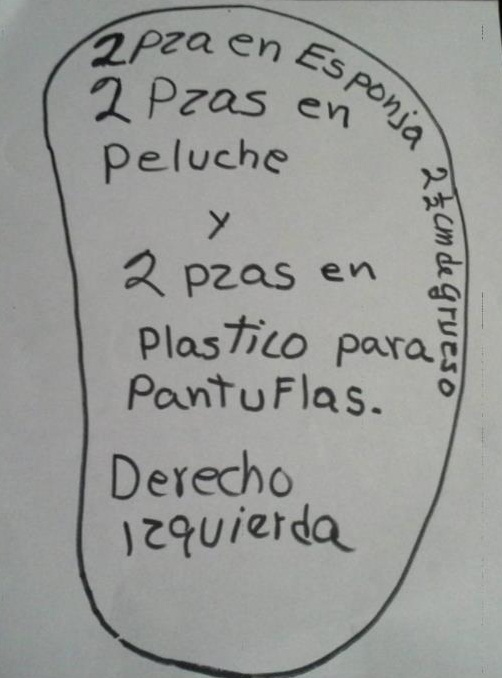 2 pza en Esponja 2½ cm de grueso
2 Pzas en
peluche
y
2 pzas en
Plastico para
PantuFlas.
Derecho
izquierda